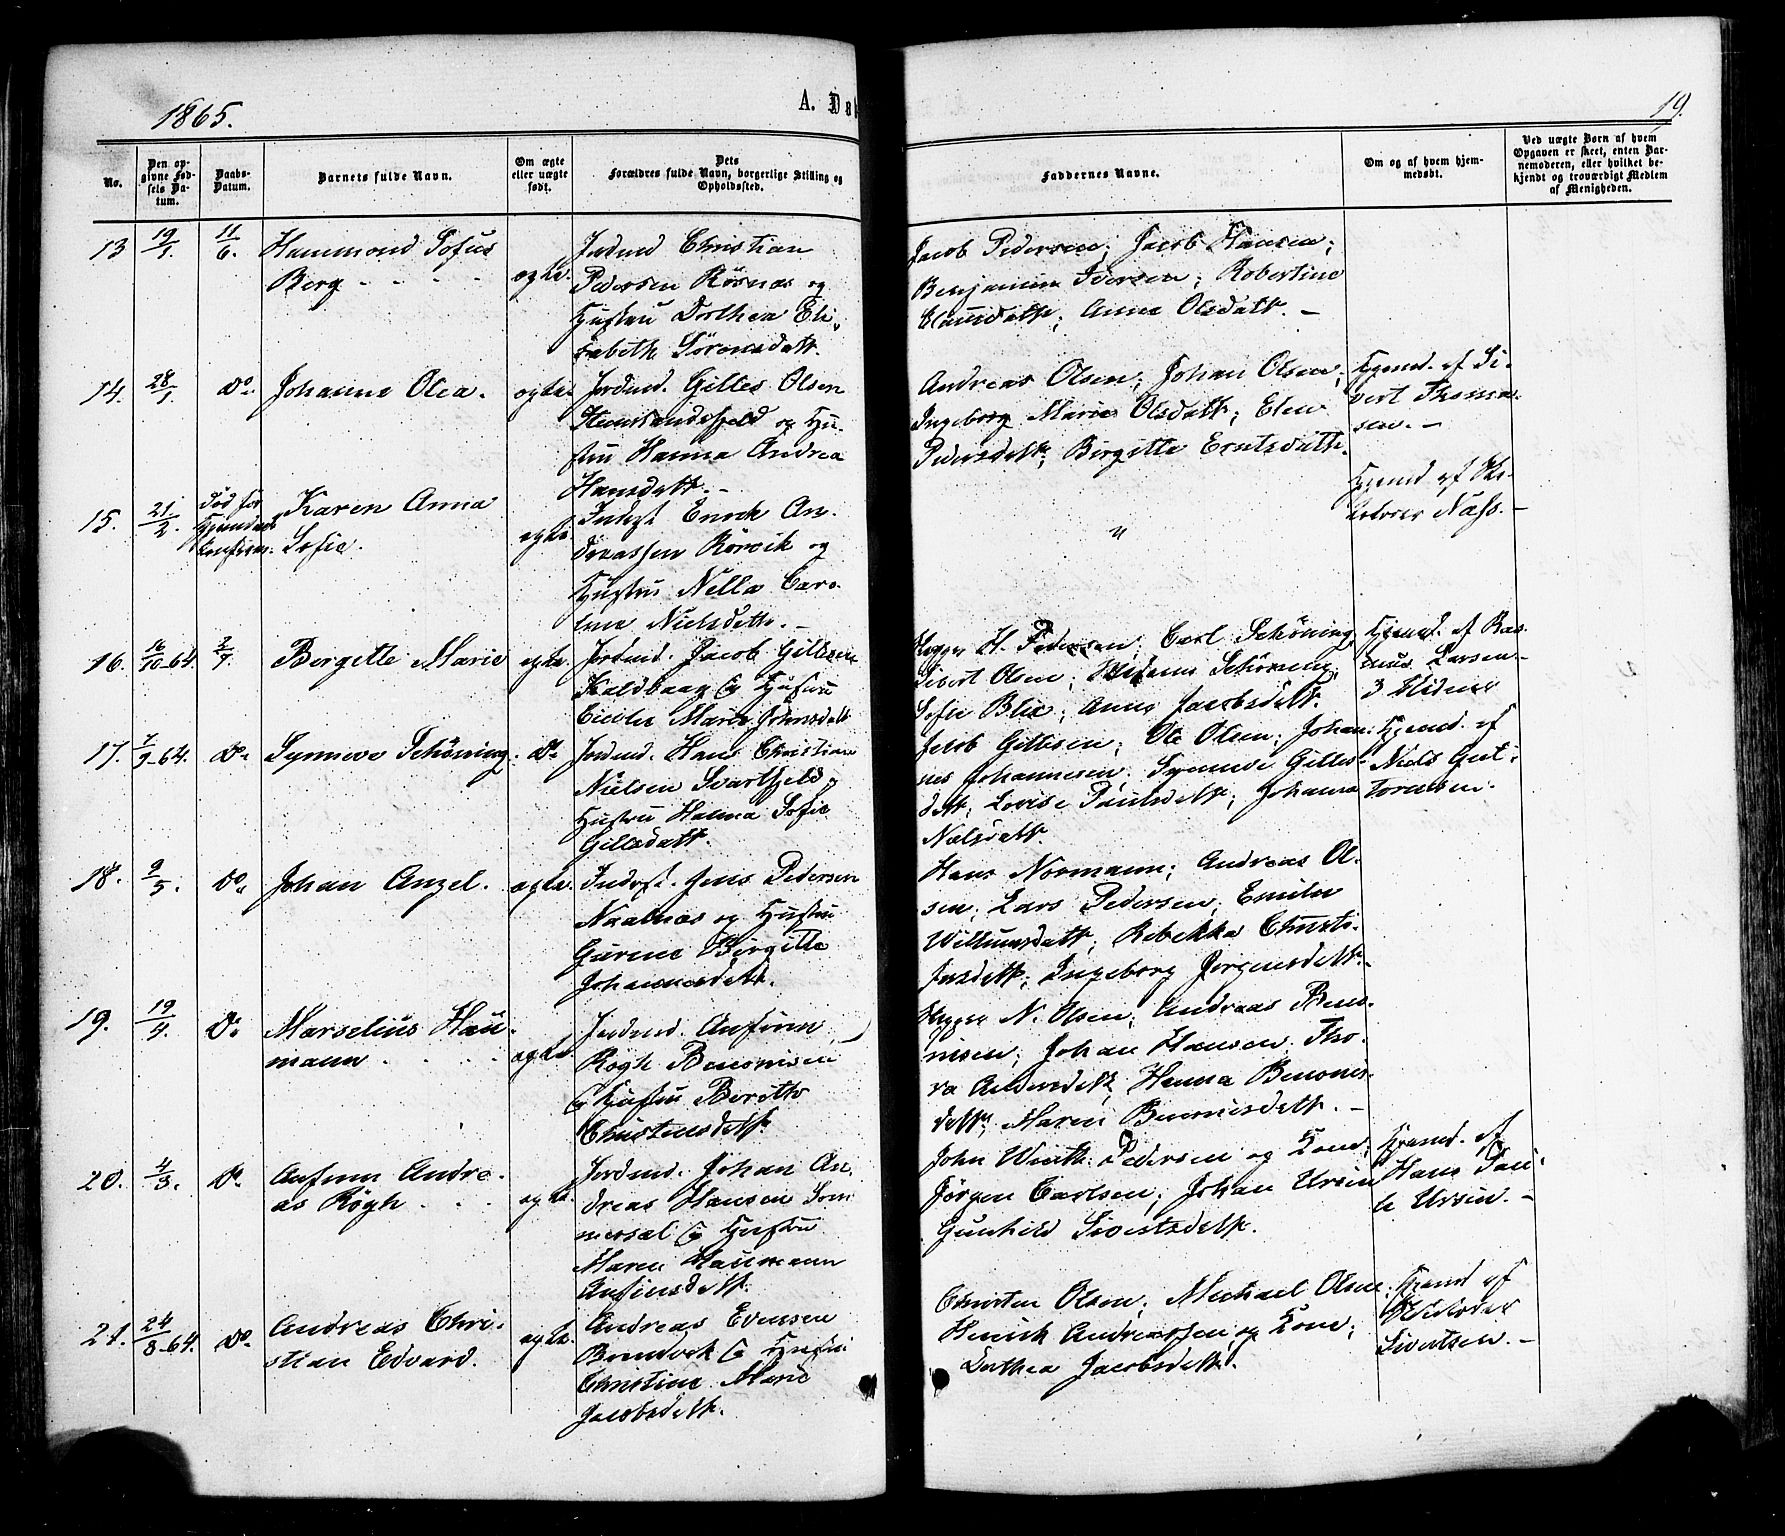 1865.
A. Døb
19.
No.
Den op-
givne Fød-
sels Da-
tum.
Daabs-
Datum.
Barnets fulde Navn.
Om ægte
eller uægte
født.
Dets
Forældres fulde Navn, borgerlige Stilling og
Opholdssted.
Faddernes Navne.
Om og af hvem hjem-
medøbt.
Ved uægte Børn af hvem
Opgaven er skeet, enten Bar-
nemoderen, eller hvilket be-
kjendt og troværdigt Medlem
af Menigheden.
13 19/1. 11/6. Hammond Sofus
Berg - - - -
ægte.
Jordmd Christian
Pedersen Rösnæs og
Hustru Dorthea Eli-
sabeth Sörensdatt.
Jacob Pedersen; Jacob Hansen;
Benjamin Iversen; Robertine
Clausdatt; Anne Olsdatt. -
14. 28/1. Do. Johanne Olea.
ægte.
Jordmd. Gilles Olsen
og Hu-
stru Hanna Andrea
Hansdatt. -
Andreas Olsen; Johan Olsen;
Ingeborg Marie Olsdatt; Elen
Pedersdatt; Birgitte Erntsdatt.
Hjemd. af Si-
vert Thoma-
sen. -
15. 21/2. Död før
Karen Anna
Sofie.
ægte.
Indst Enok An-
dreassen Rörvik og
Hustru Nella Caro-
line Nielsdatt. -
"
Hjemd af Kri-
Næss. -
16. 16/10-64. 2/7. Bergette Marie
ægte.
Jordmd. Jacob Gillesen
Kaldvaag & Hustru
Marie Johnsdatt
H. Pedersen; Carl Schöning
Sivert Olsen; Schöning;
Sofie Blix; Anne Jacobsdatt.
Hjemd. af Ras-
mus Larsen
3 Vidner
17. 7/9-64. Do Synneve Schöning. Do
Jordmd. Hans Christian
Nielsen Svartfjeld &
Hustru Hanna Sofie
Gillesdatt.
Jacob Gillesen; Ole Olsen; Johan-
nes Johannesen; Synneve Gilles-
datt; Lovise Paulsdatt; Johanna
Nielsdatt.
Hjemd. af
Niels Gut-
tormsen.
18. 9/5. Do. Johan Angel.
ægte.
Indst. Jens Pedersen
og Hustru
Gurine Birgitte
Johannesdatt.
Hans Normann; Andreas Ol-
sen; Lars Pedersen; Emilie
Willumsdatt; Rebekka Christo-
fersdatt; Ingeborg Jörgensdatt. -
19. 19/4. Do. Marselius Hau-
mann - - - -
ægte.
Jordmd. Anfinn
Rögh Benonisen
& Hustru Beritte
Christensdatt.
N. Olsen; Andreas Beno-
nisen; Johan Hansen; Tho-
ra Andersdatt; Hanna Benonis-
datt; Maren Benonisdatt. -
20. 4/3. Do Anfinn Andre-
as Rögh - - -
ægte.
Jordmd. Johan An-
dreas Hansen Som-
mersæl & Hustru
Maren Haumann
Anfinsdatt.
John With Pedersen og Kone;
Jörgen Carlsen; Johan Ursin
Gunhild Sivertsdatt.
Hjemd. af
Hans Pau-
le Ursin. -
21. 24/8-64. Do. Andreas Chri-
stian Edvard.
ægte.
Andreas Evensen
& Hustru
Christine Marie
Jacobsdatt.
Christen Olsen; Michael Olsen
Henrik Andreassen og Kone;
Dorthea Jacobsdatt.
Hjemd af
Sivertsen. -